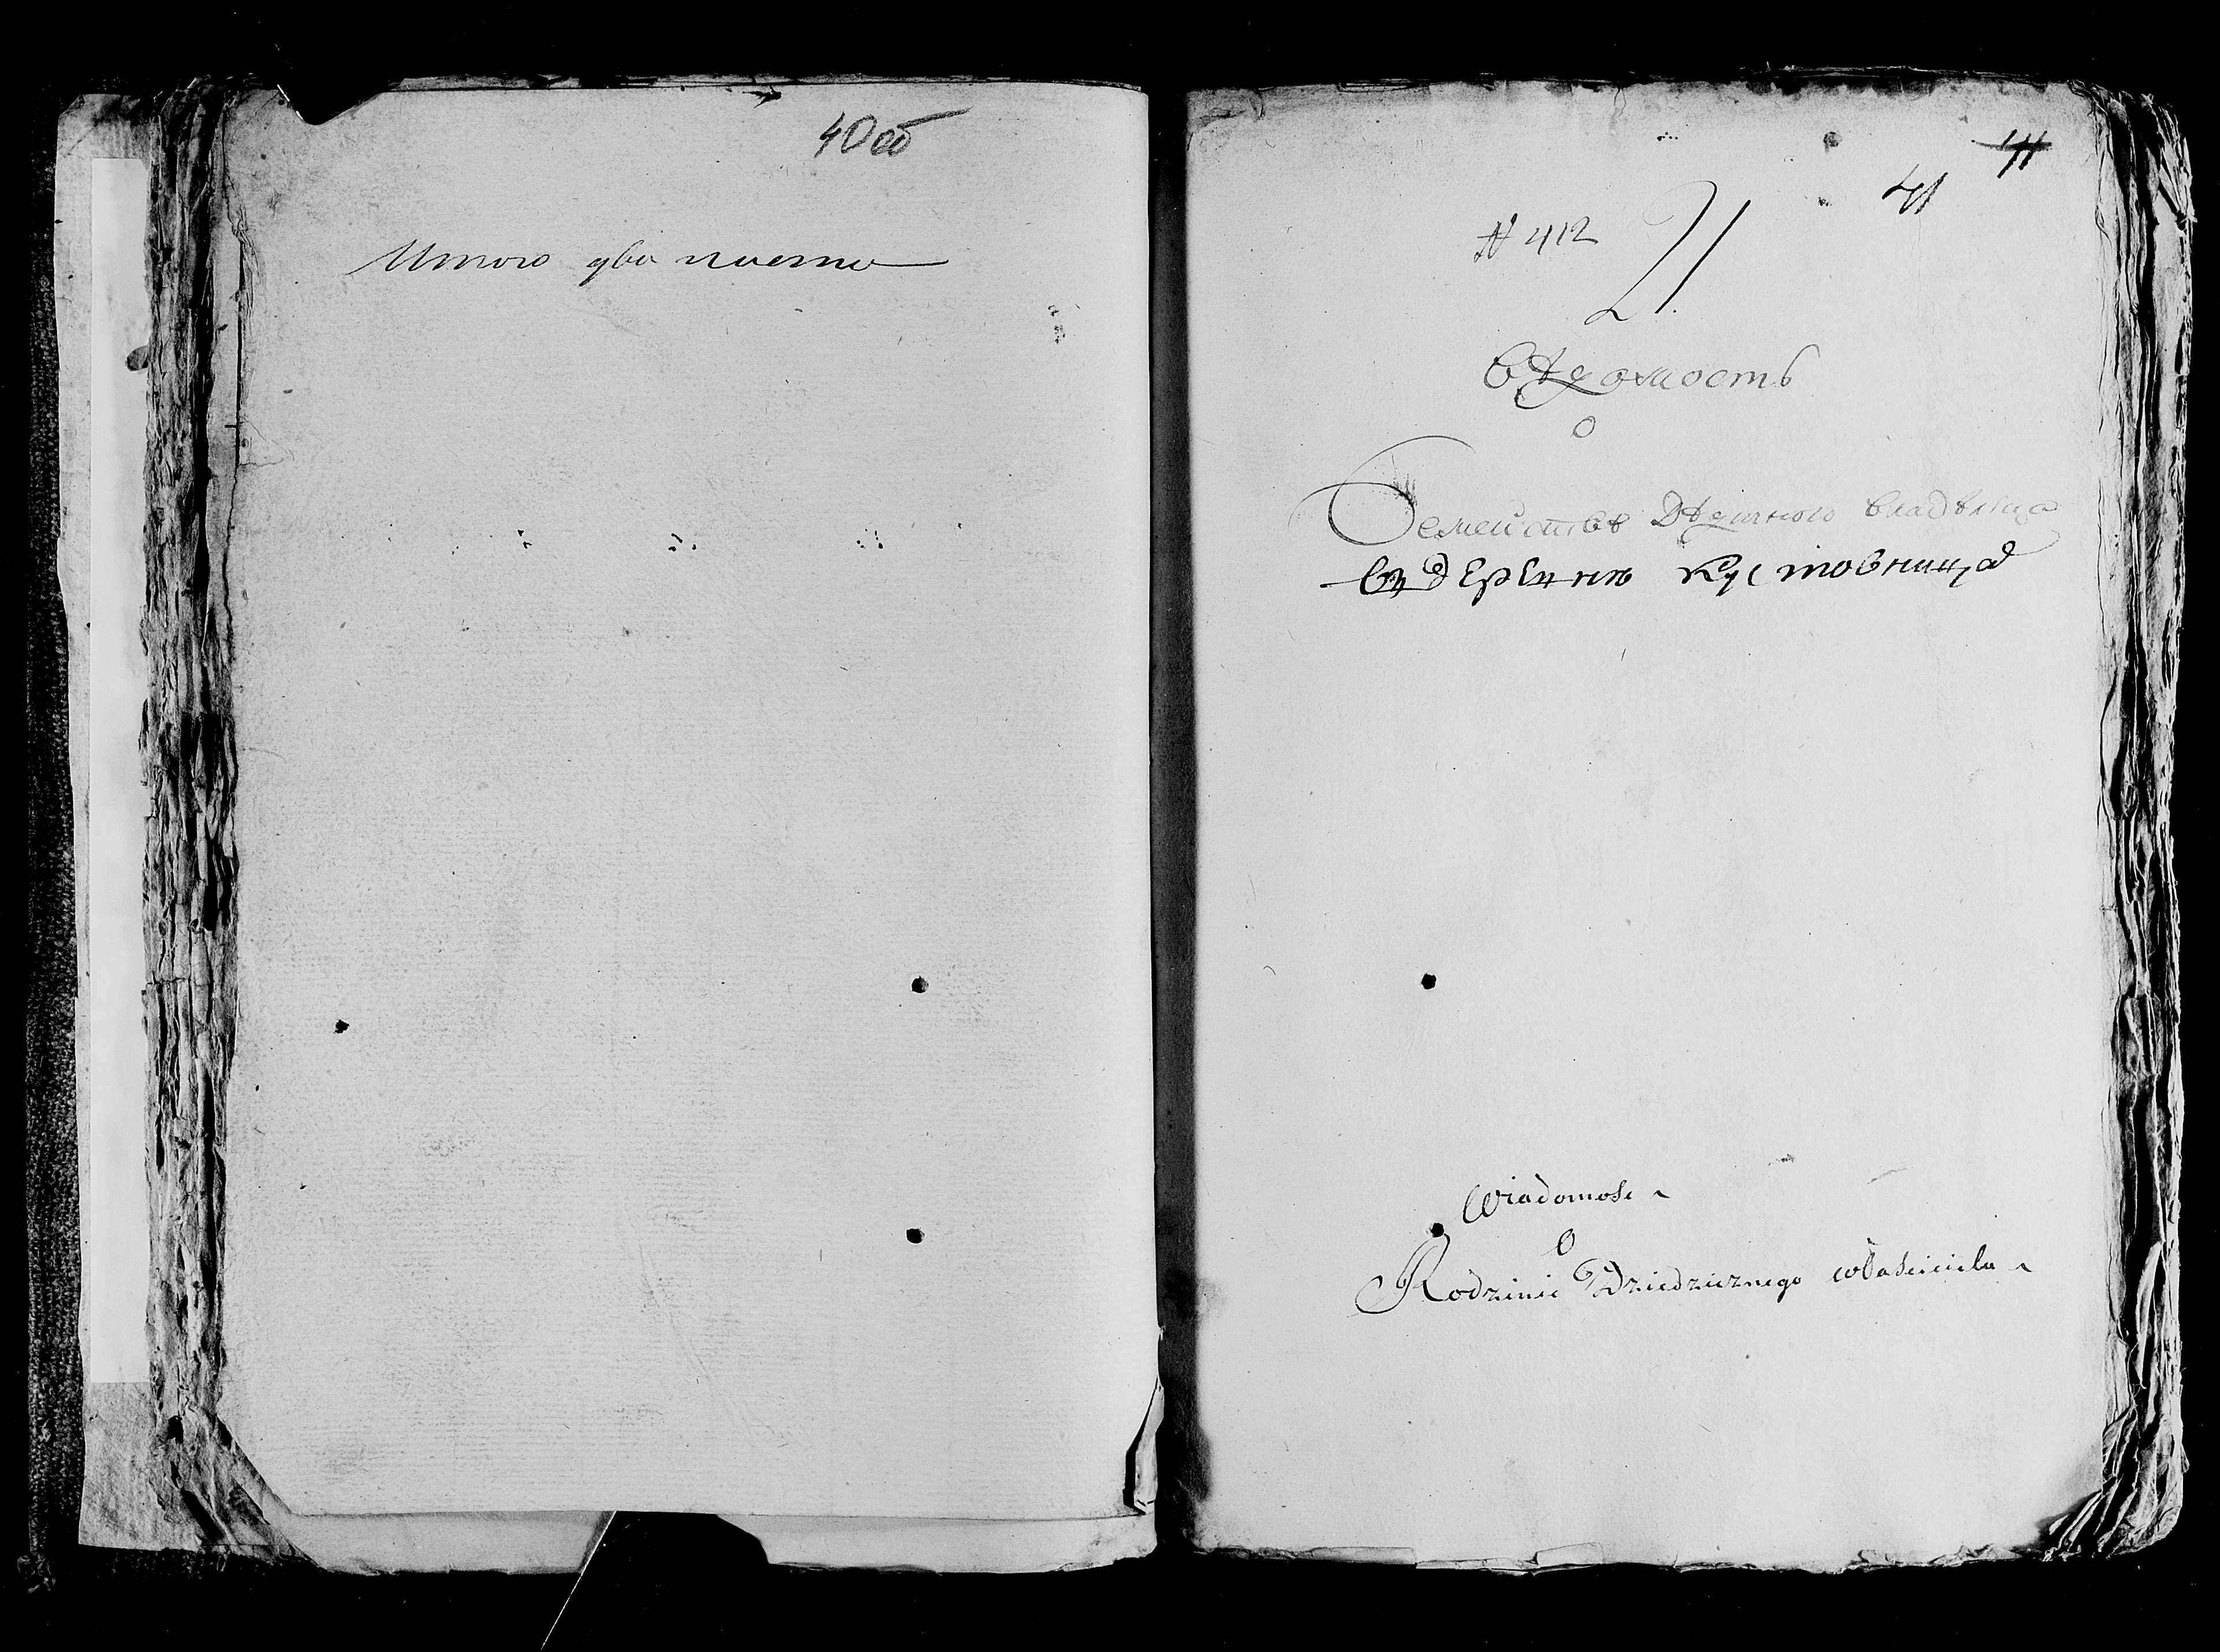 40 об
Итого два листа
41
№ 412 21.
Вѣдомость
О
Семействѣ Дѣдичного владѣльца
въ деревне Кустовница
Wiadomość
O
Rodzinie Dziedzicznego właściciela